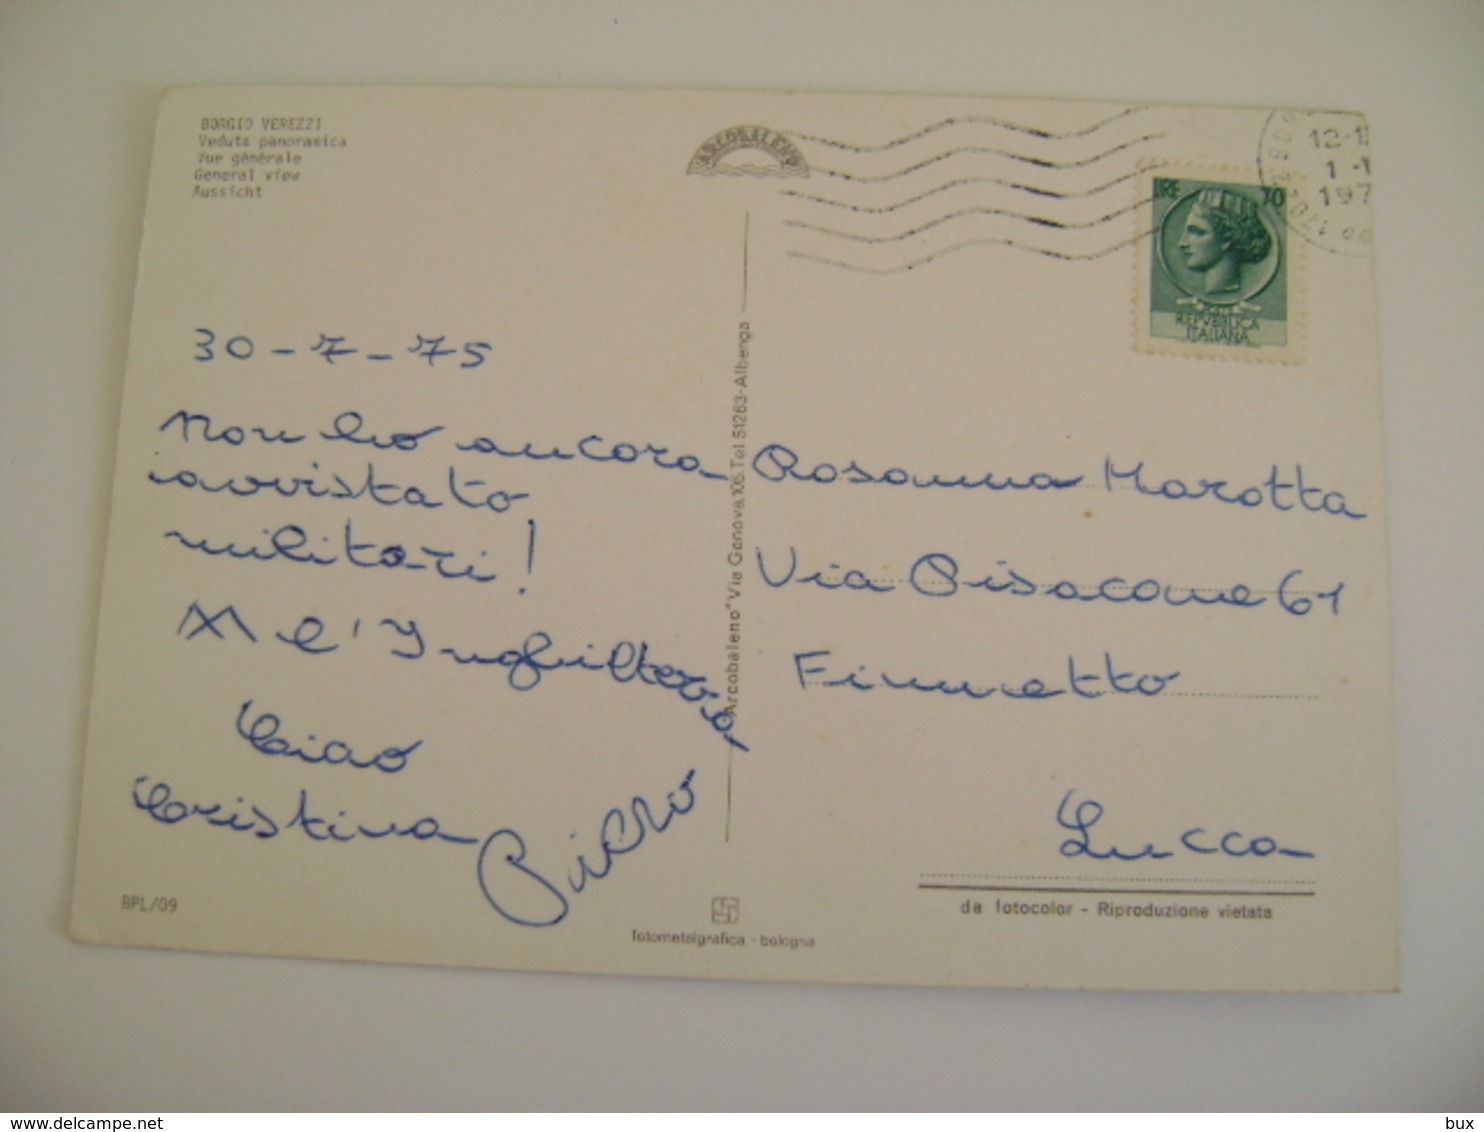 BORGIO VEREZZI
Veduta panoramica
Vue générale
General view
Aussicht
ARCOBALENO
LIRE 70
REPVBBLICA
ITALIANA
12-1
1
197
30-7-75
Non ho ancora
avvistato
militari!
W l'Inghilterra
Ciao
Cristina
Piero
"Arcobaleno" Via Genova,105.Tel 51263-Albenga
Rosanna Marotta
Via Pisacane 61
Lucca
BPL/09
fotometalgrafica - bologna
da fotocolor - Riproduzione vietata
bux